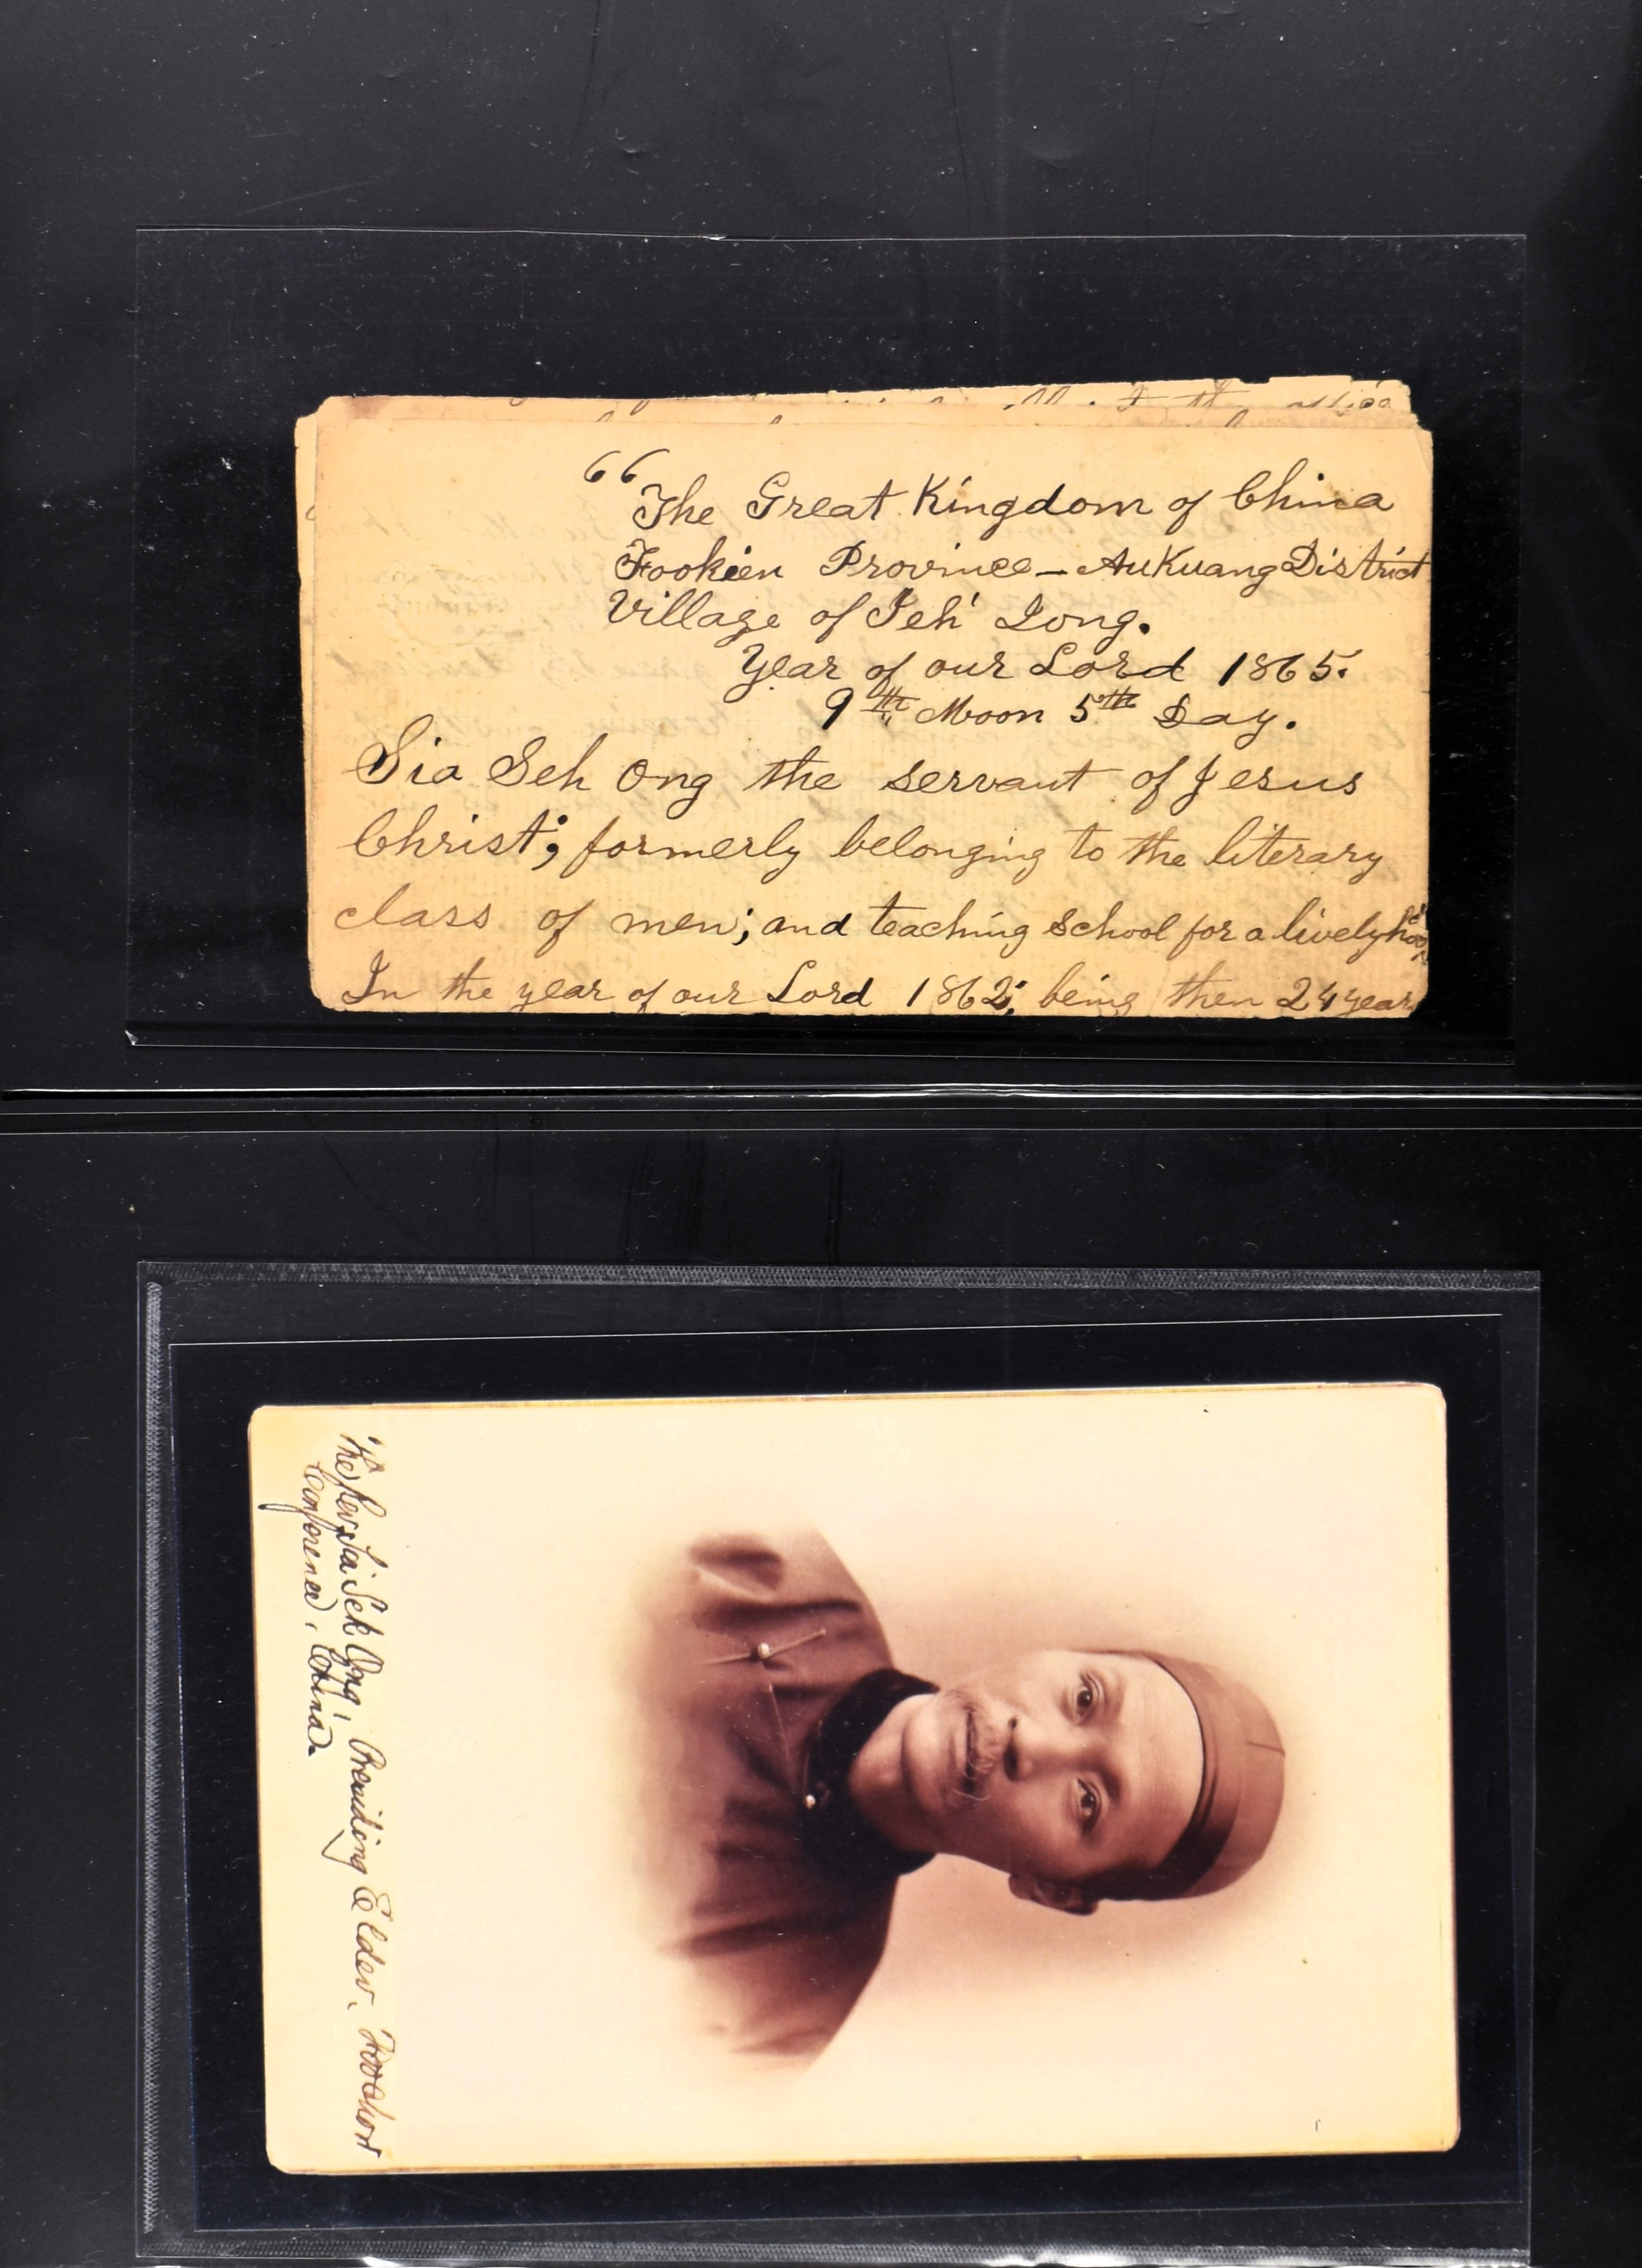 “The Great Kingdom of China
Fookien Province – AuKuang District
Village of Teh' Iong.
Year of our Lord 1865.
9th Moon 5th Day.
Sia Seh Ong the servant of Jesus
Christ; formerly belonging to the literary
class of men; and teaching school for a livelyhood
In the year of our Lord 1862; being then 24 years
The Rev. Sia Sek Ong, Presiding Elder, Foochow
Conference, China.